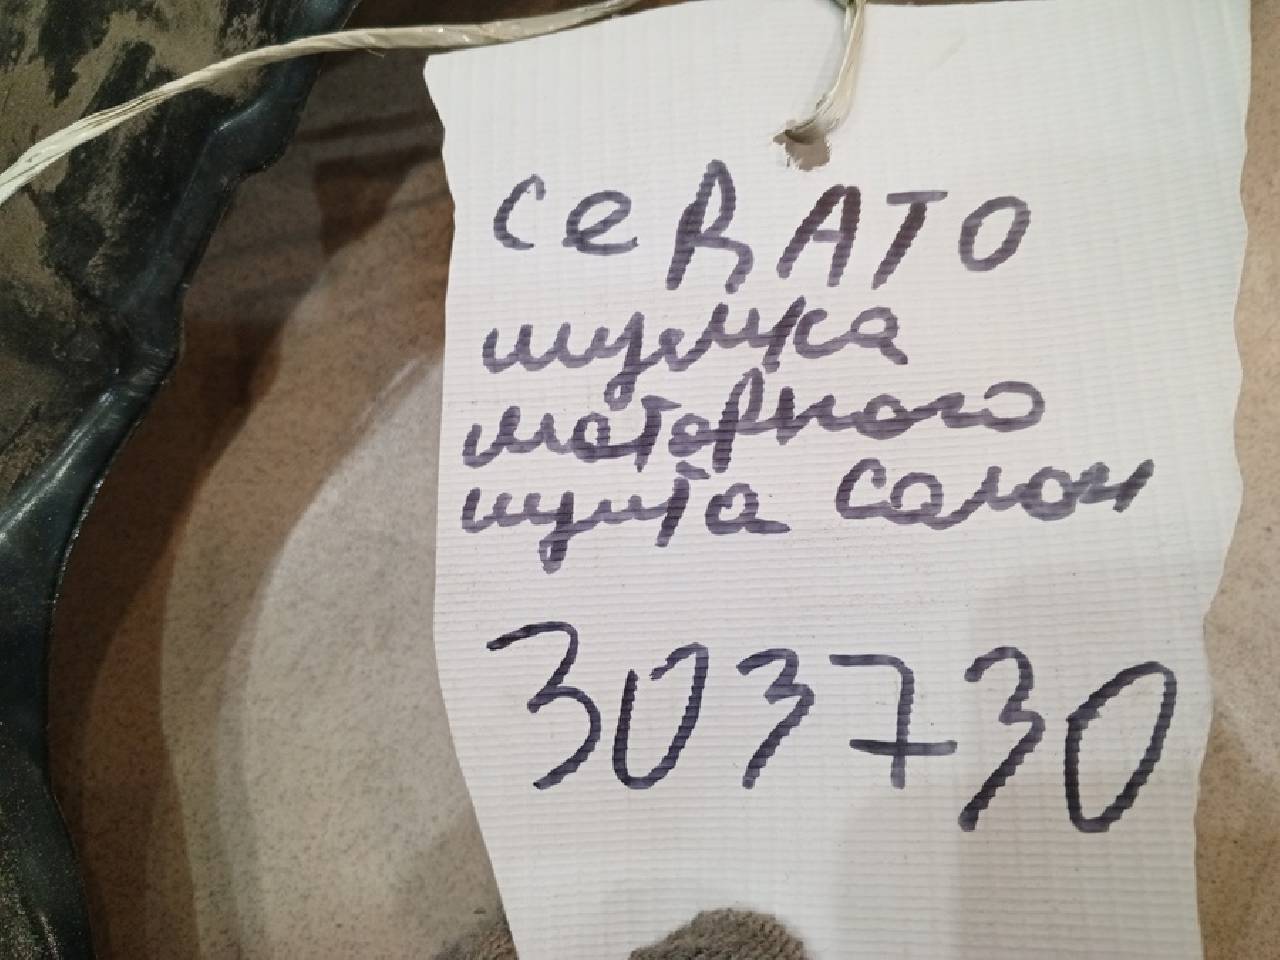 CeRATO
шумка
моторного
щита салон
303730